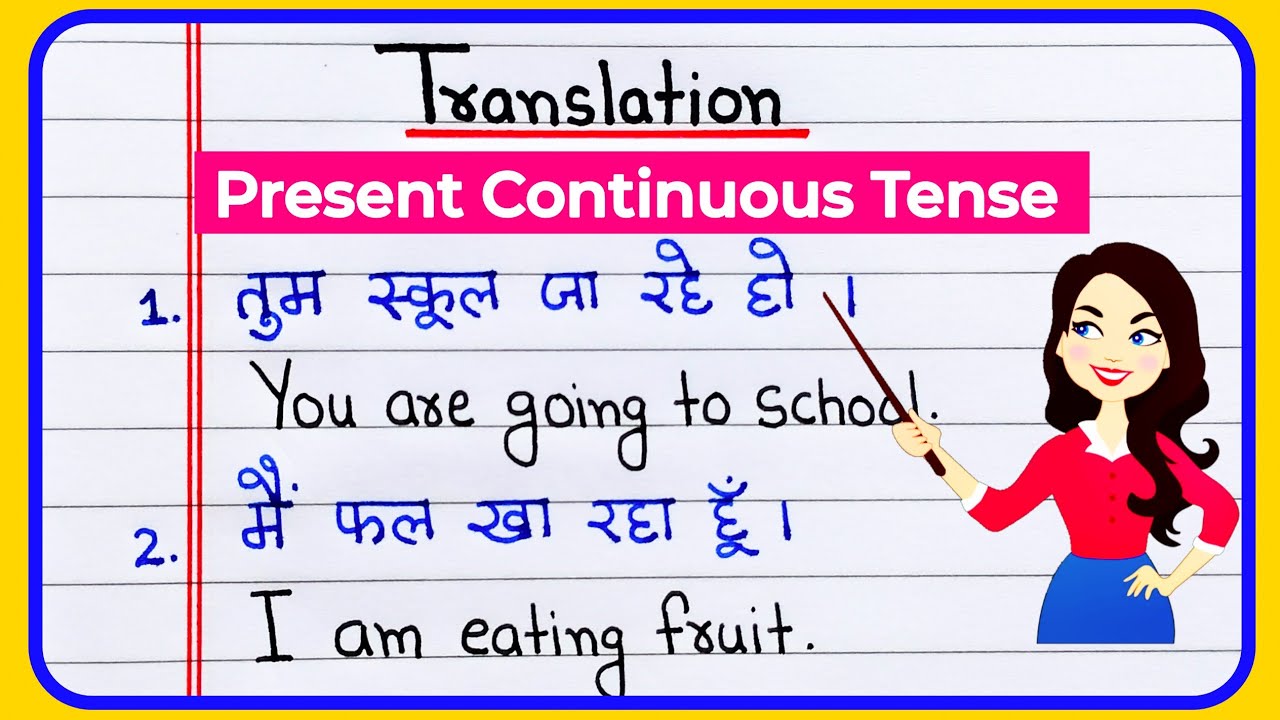 Translation
Present Continuous Tense
1. तुम स्कूल जा रहे हो ।
You are going to school.
2. मैं फल खा रहा हूँ ।
I am eating fruit.